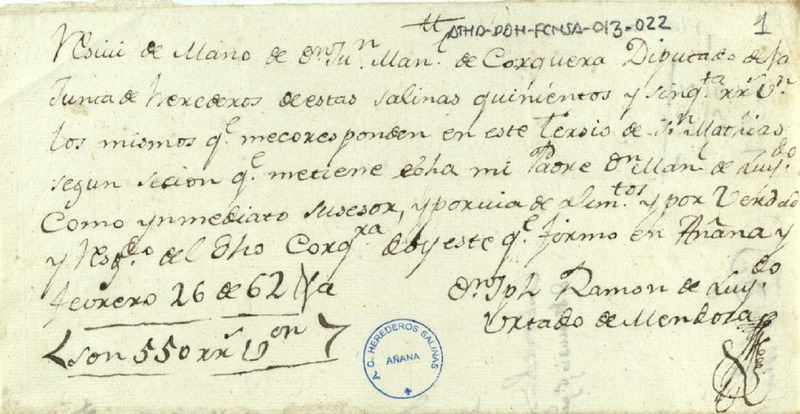 ATHA-DAH-FCNSA-013-022
1
Resivi de Mano de Dn Jun Manl de Corquera Diputado de la
Junta de herederos de estas salinas quinientos y sinqta rrs Vn
los mismos qe me coresponden en este tersio de Sn Mathias
segun sesion qe me tiene echa mi Padre Dn Manl de Luydo
Como ynmediato susesor, y por via de Alimtos y por Verdad
y Resgdo del dho Corqra doy este qe firmo en Añana y
febrero 26 de 62
Dn Jph Ramon de Luydo
Urtado de Mendoza
Son 550 rrs Von
A. C. HEREDEROS SALINAS
AÑANA